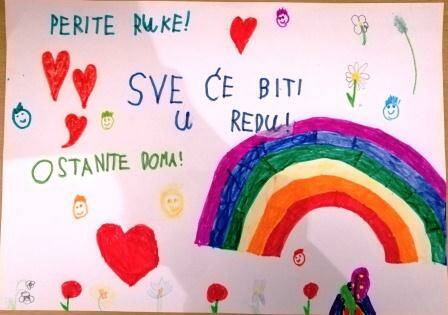 PERITE RUKE!
SVE ĆE BITI
U REDU!
OSTANITE DOMA!